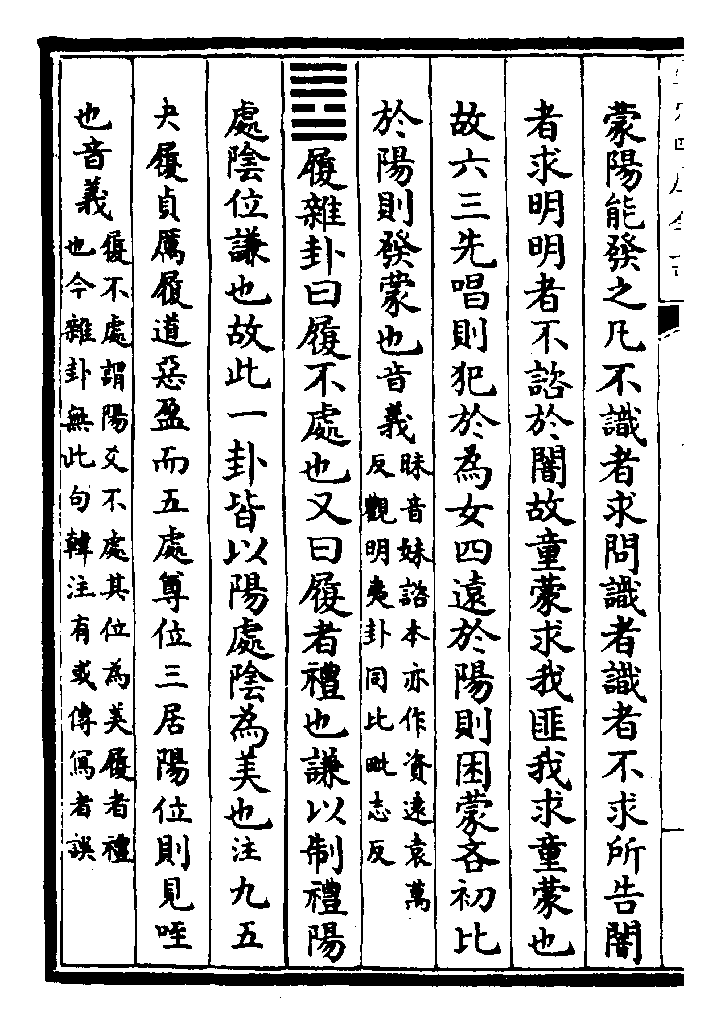 蒙陽能發之凡不識者求問識者識者不求所告闇
者求明明者不諮於闇故童蒙求我匪我求童蒙也
故六三先唱則犯於為女四遠於陽則困蒙吝初比
於陽則發蒙也音義昧音妹諮本亦作資遠袁萬
反觀明夷卦同比毗志反
䷉履雜卦曰履不處也又曰履者禮也謙以制禮陽
處陰位謙也故此一卦皆以陽處陰為美也注九五
夬履貞厲履道惡盈而五處尊位三居陽位則見咥
也音義履不處謂陽爻不處其位為美履者禮
也今雜卦無此句韓注有或傳寫者誤